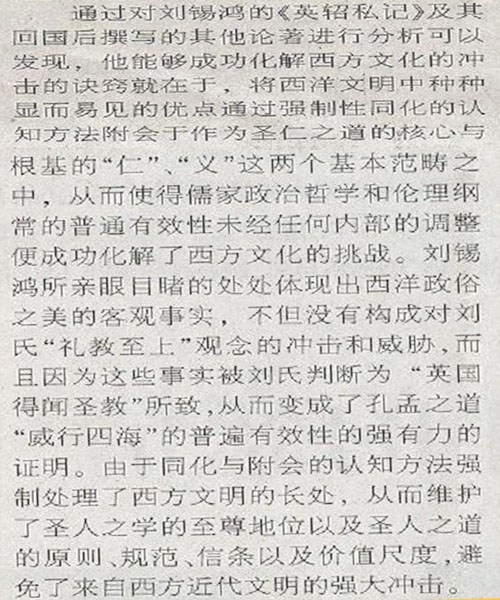 通过对刘锡鸿的《英轺私记》及其
回国后撰写的其他论著进行分析可以
发现，他能够成功化解西方文化的冲
击的诀窍就在于，将西洋文明中种种
显而易见的优点通过强制性同化的认
知方法附会于作为圣仁之道的核心与
根基的“仁”、“义”这两个基本范畴之
中，从而使得儒家政治哲学和伦理纲
常的普通有效性未经任何内部的调整
便成功化解了西方文化的挑战。刘锡
鸿所亲眼目睹的处处体现出西洋政俗
之美的客观事实，不但没有构成对刘
氏“礼教至上”观念的冲击和威胁，而
且因为这些事实被刘氏判断为“英国
得闻圣教”所致，从而变成了孔孟之道
“威行四海”的普遍有效性的强有力的
证明。由于同化与附会的认知方法强
制处理了西方文明的长处，从而维护
了圣人之学的至尊地位以及圣人之道
的原则、规范、信条以及价值尺度，避
免了来自西方近代文明的强大冲击。